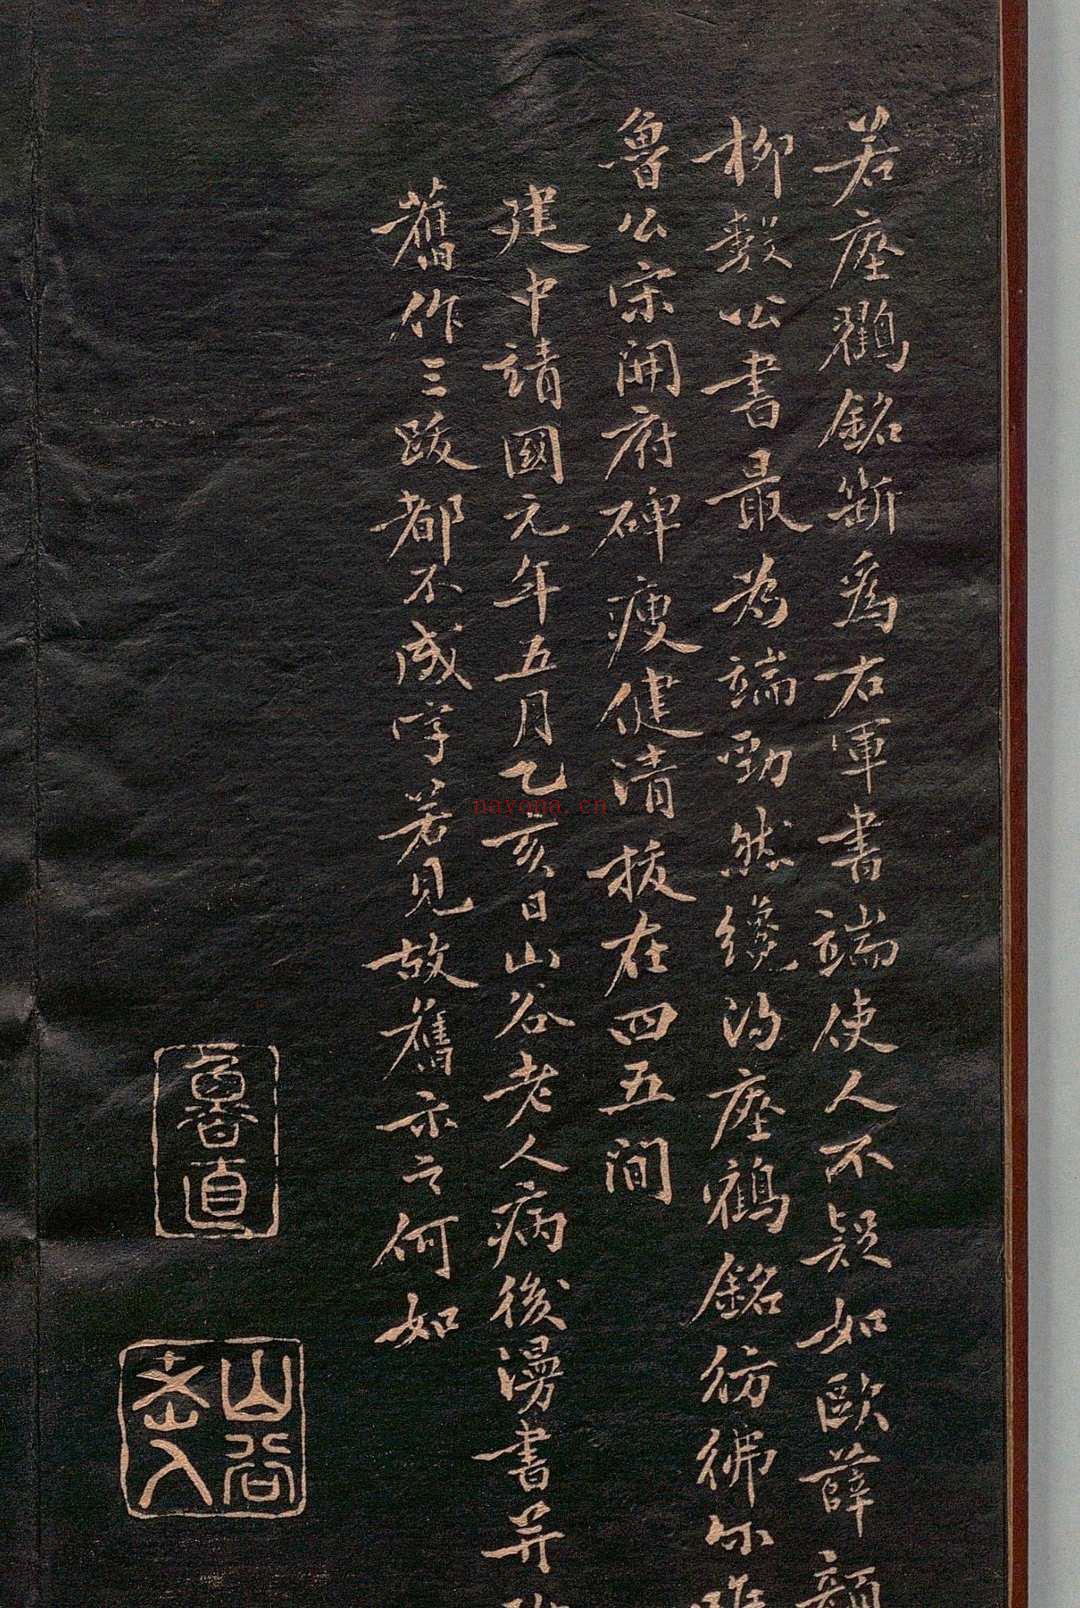 若瘞鶴銘斷爲右軍書端使人不疑如歐薛顏
柳數公書最为端勁然纔得瘞鶴銘彷彿尔唯
魯公宋開府碑瘦健清拔在四五間
建中靖國元年五月乙亥日山谷老人病後漫書并
舊作三跋都不成字若見故舊示之何如
魯直
山谷老人
nayona.cn